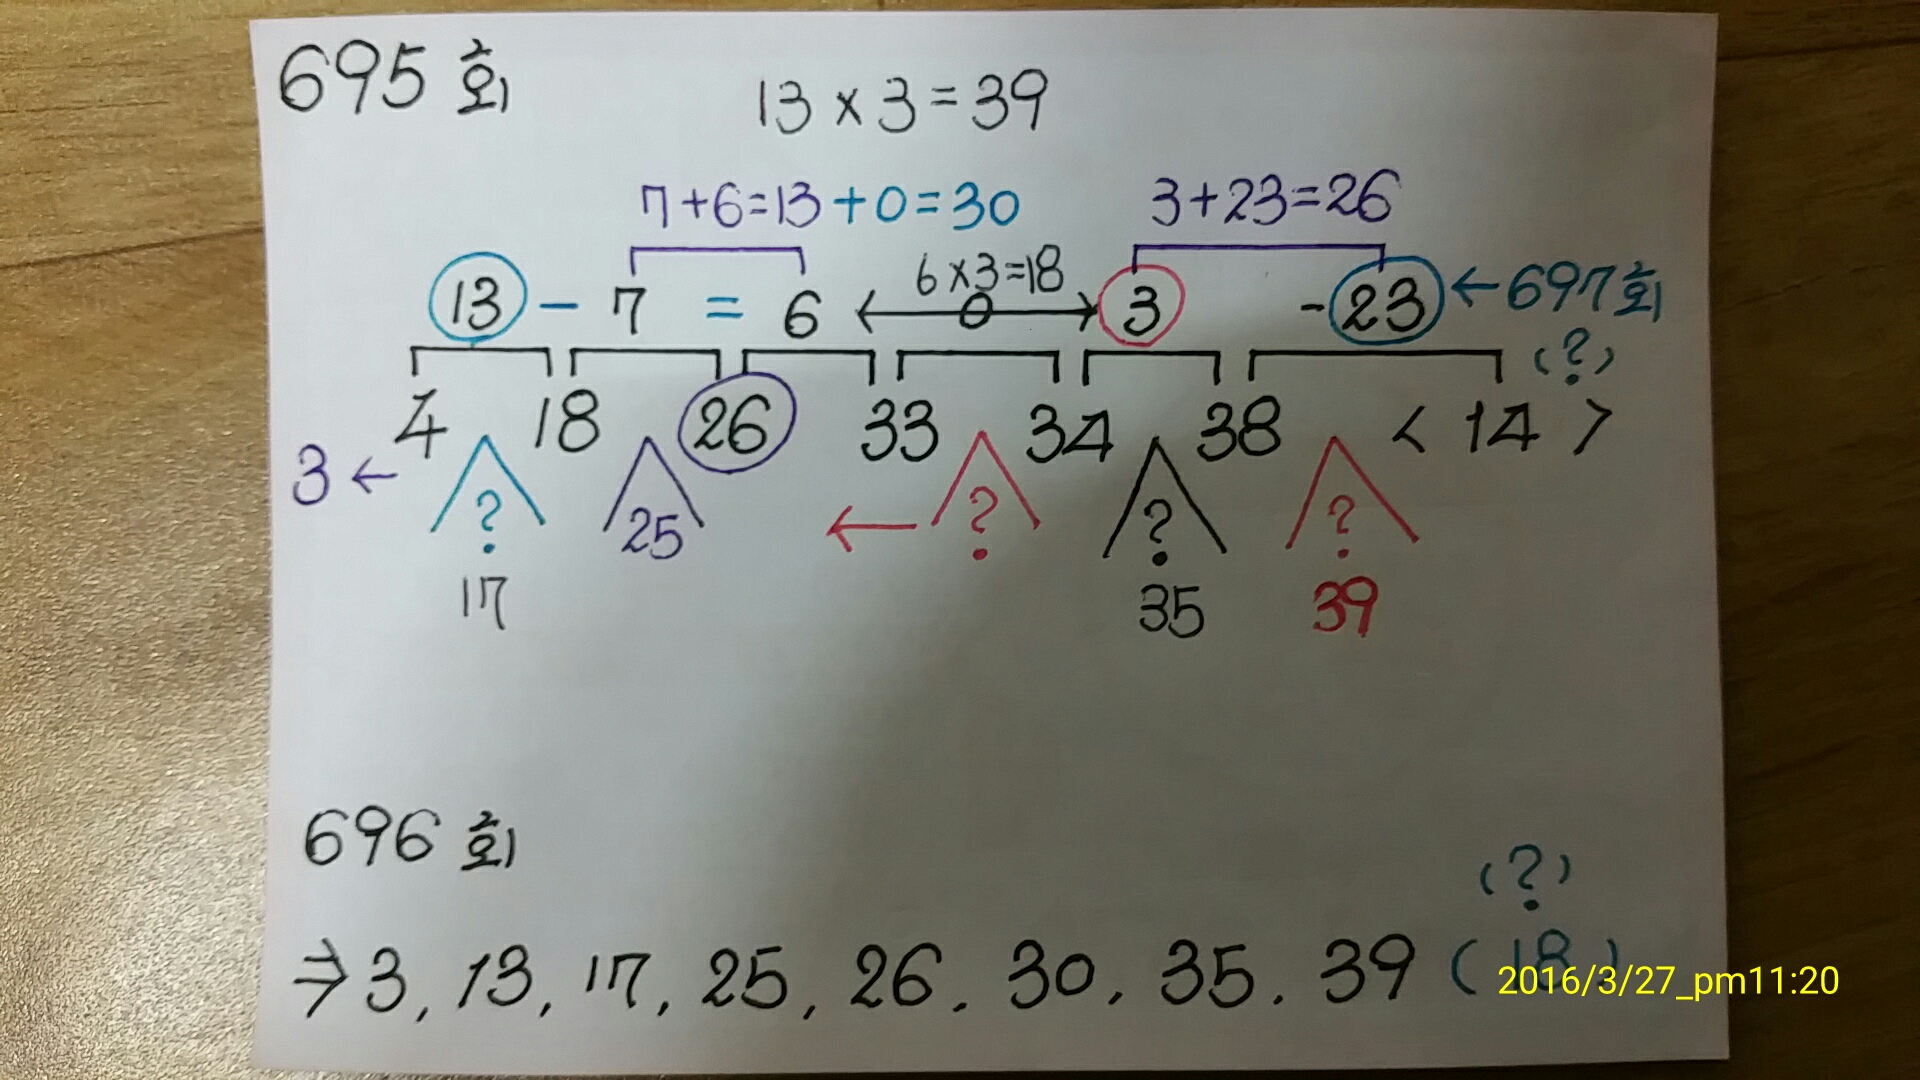 695회
13 x 3 = 39
7+6=13+0=30 3+23=26
6x3=18
13 - 7 = 6 0 3 -23 ←697회
(?)
4 18 26 33 34 38 < 14 >
3 ←
? 25 ← ? ? ?
17 35 39
696회
(?)
⇒ 3, 13, 17, 25, 26, 30, 35, 39 (18)
2016/3/27_pm11:20